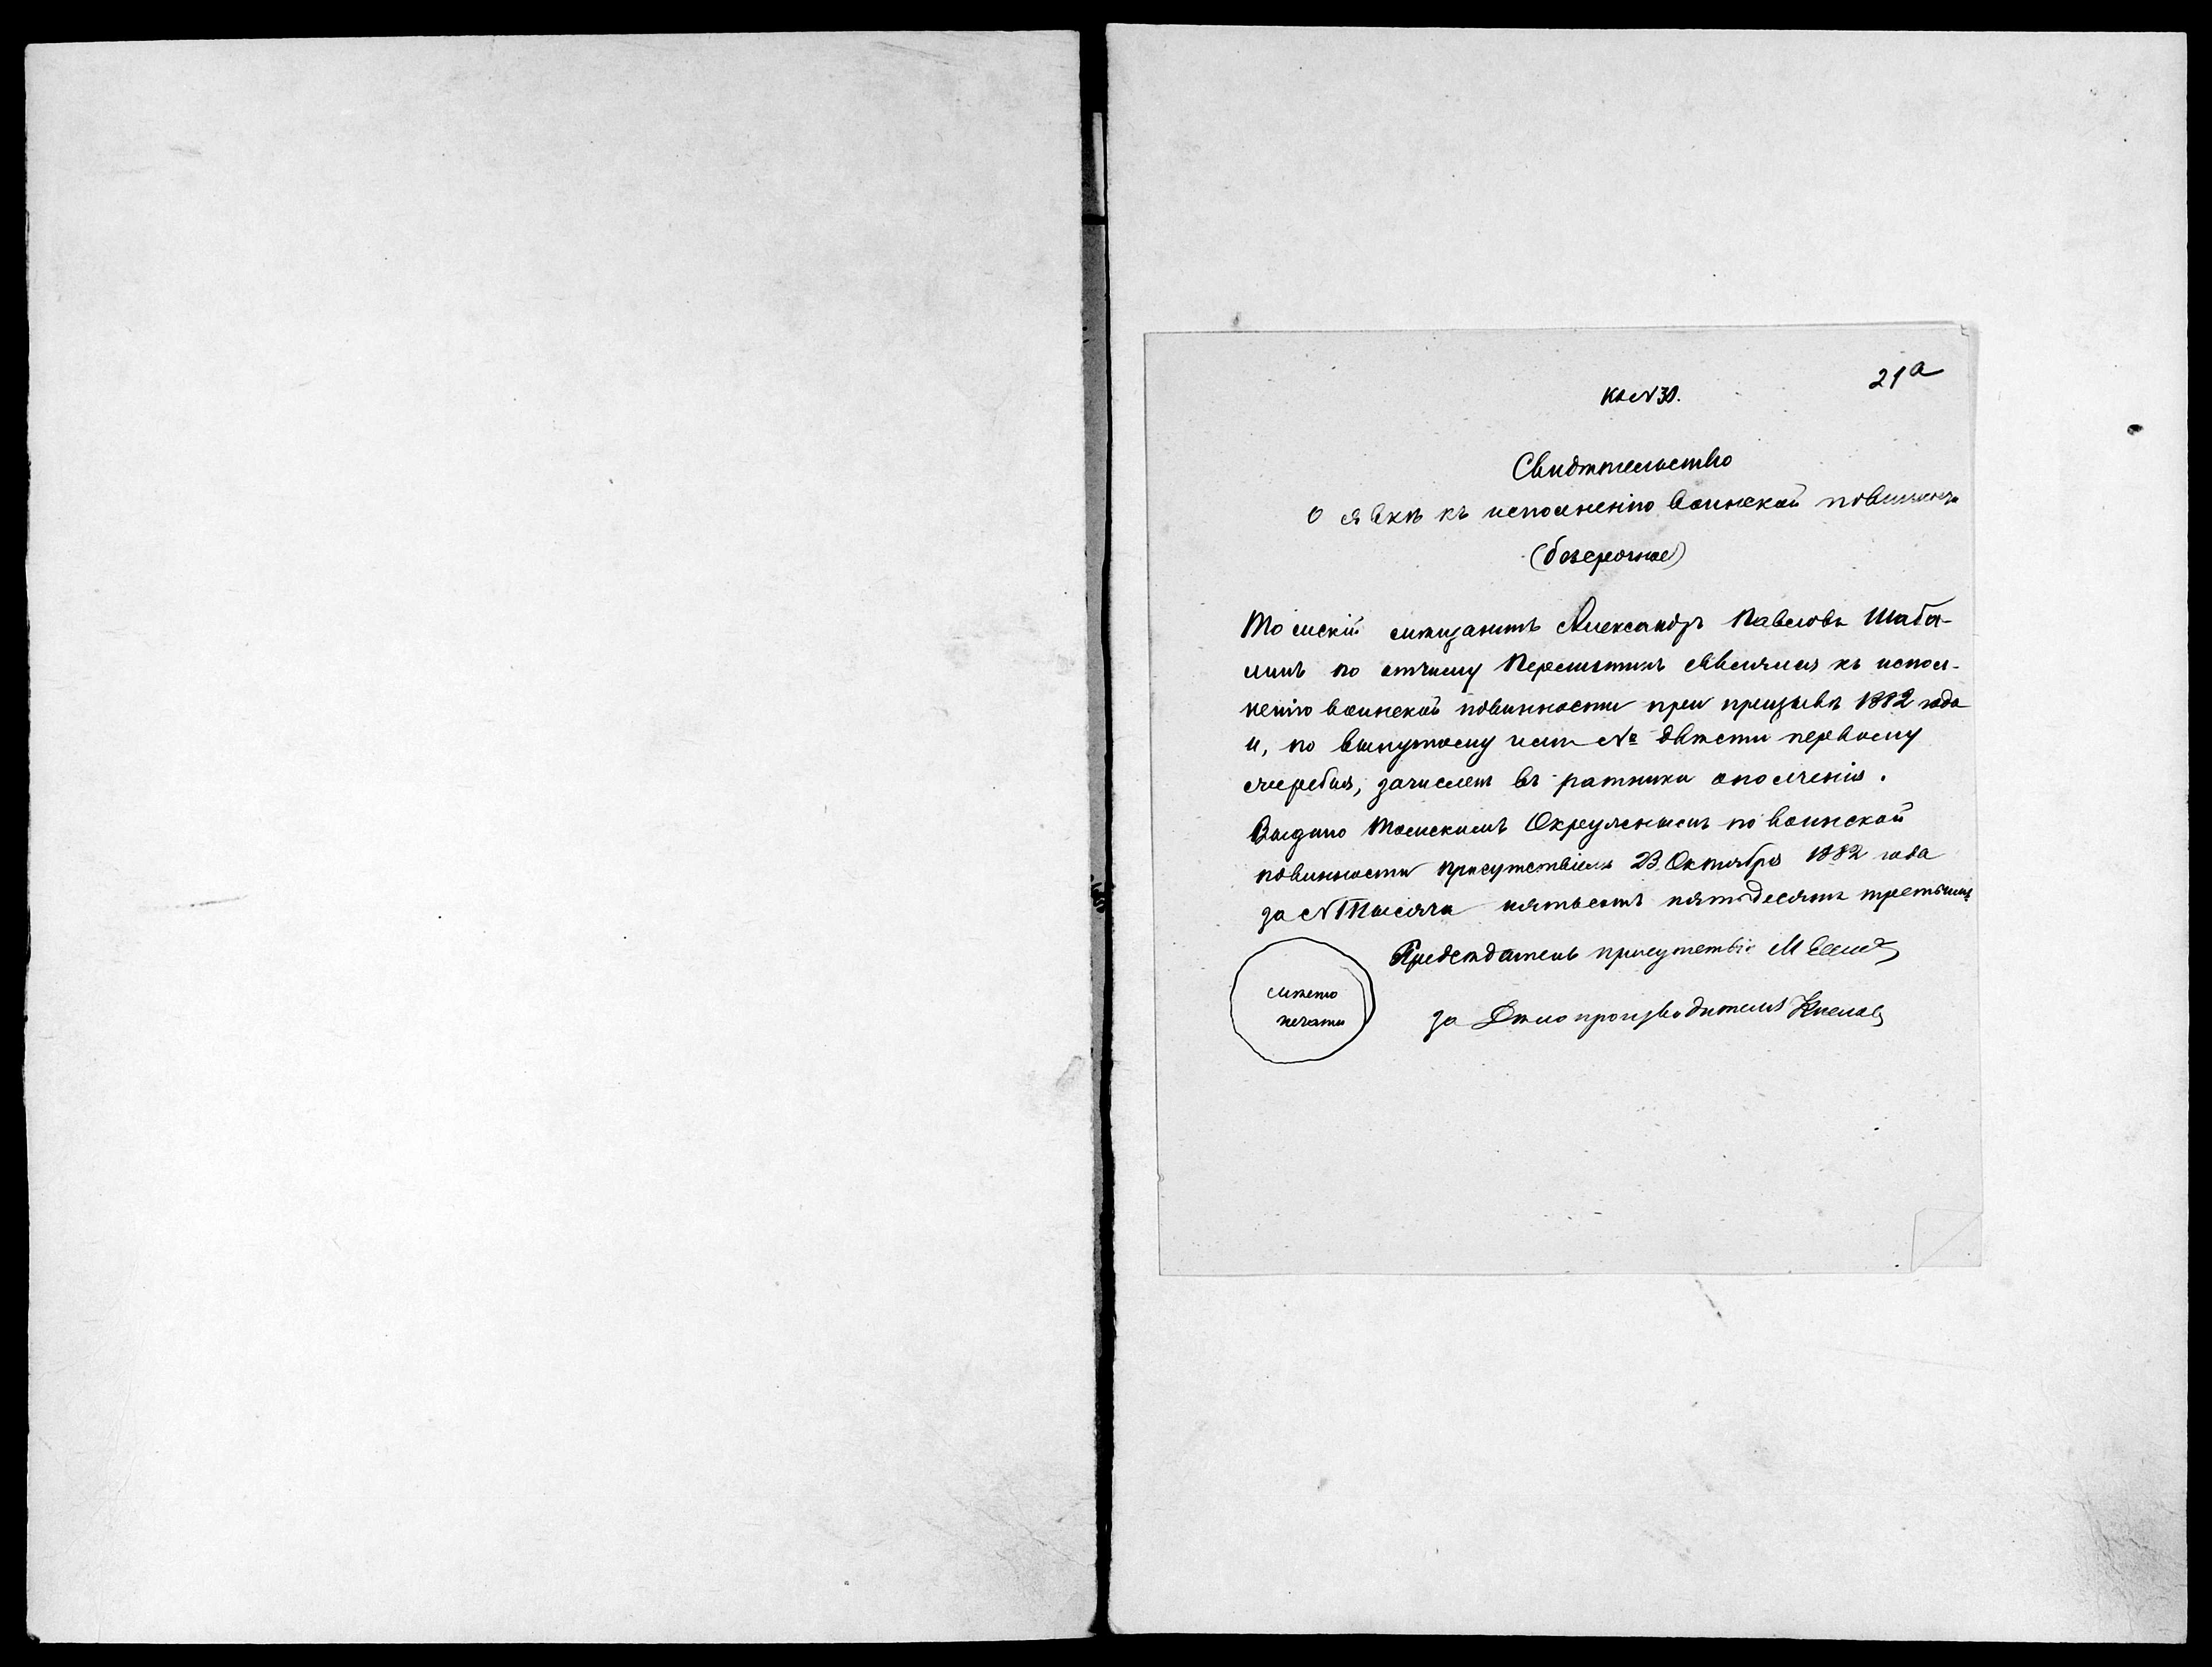 21а
Къ № 30.
Свидѣтельство
О явкѣ къ исполненію воинской повинности
(безсрочное)
Томскій мѣщанинъ Александръ Павловъ Шаба-
линъ по отчиму явился къ испол-
ненію воинской повинности при призывѣ 1882 года
и, по вынутому имъ № двѣсти первому
жеребья, зачисленъ въ ратники ополченія.
Выдано Томскимъ Окружнымъ по воинской
повинности присутствіемъ 23 Октября 1882 года
за № Тысяча пятьсотъ пятьдесятъ третьимъ
Предсѣдатель присутствія
мѣсто
печати
за Дѣлопроизводителя